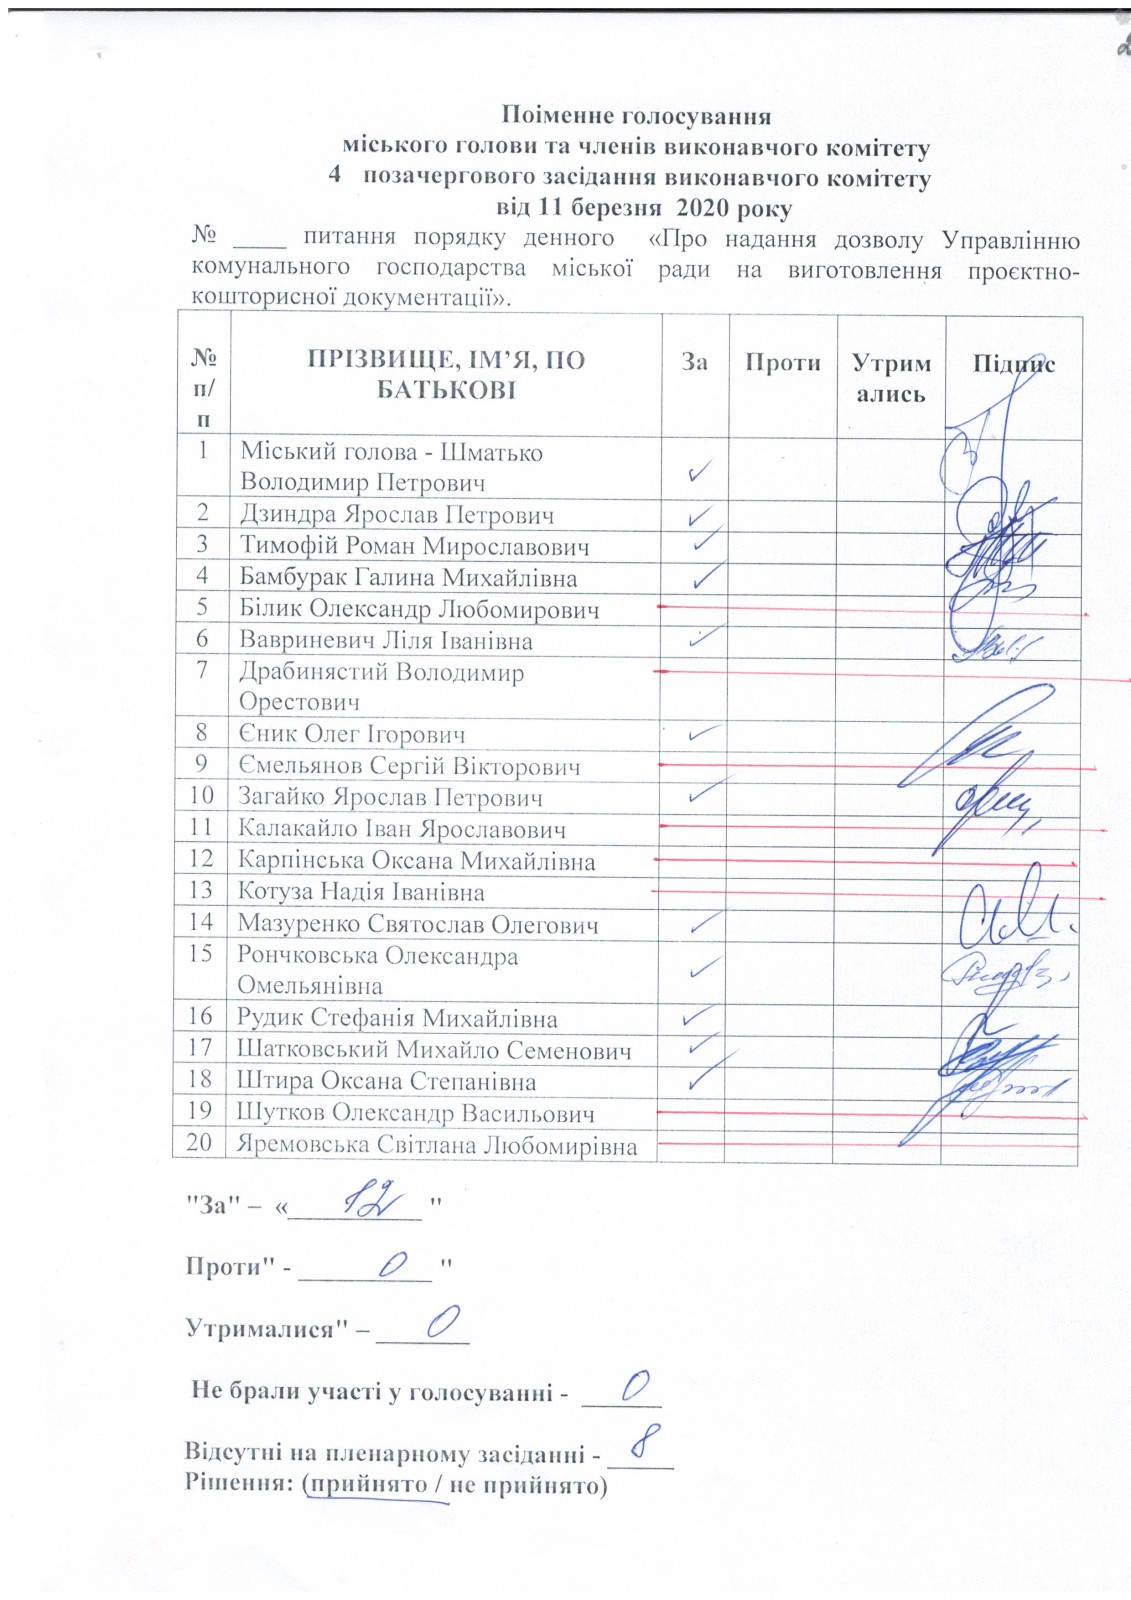 Поіменне голосування
міського голови та членів виконавчого комітету
4 позачергового засідання виконавчого комітету
від 11 березня 2020 року
№ ____ питання порядку денного «Про надання дозволу Управлінню
комунального господарства міської ради на виготовлення проєктно-
кошторисної документації».
№ п/п ПРІЗВИЩЕ, ІМ’Я, ПО БАТЬКОВІ За Проти Утримались Підпис
1 Міський голова - Шматько
Володимир Петрович ✓
2 Дзиндра Ярослав Петрович ✓
3 Тимофій Роман Мирославович ✓
4 Бамбурак Галина Михайлівна ✓
5 Білик Олександр Любомирович
6 Вавриневич Ліля Іванівна ✓
7 Драбинястий Володимир
Орестович
8 Єник Олег Ігорович ✓
9 Ємельянов Сергій Вікторович
10 Загайко Ярослав Петрович ✓
11 Калакайло Іван Ярославович
12 Карпінська Оксана Михайлівна
13 Котуза Надія Іванівна
14 Мазуренко Святослав Олегович ✓
15 Рончковська Олександра
Омельянівна ✓
16 Рудик Стефанія Михайлівна ✓
17 Шатковський Михайло Семенович ✓
18 Штира Оксана Степанівна ✓
19 Шутков Олександр Васильович
20 Яремовська Світлана Любомирівна
"За" – «12 "
Проти" - 0 "
Утрималися" – 0
Не брали участі у голосуванні - 0
Відсутні на пленарному засіданні - 8
Рішення: (прийнято / не прийнято)